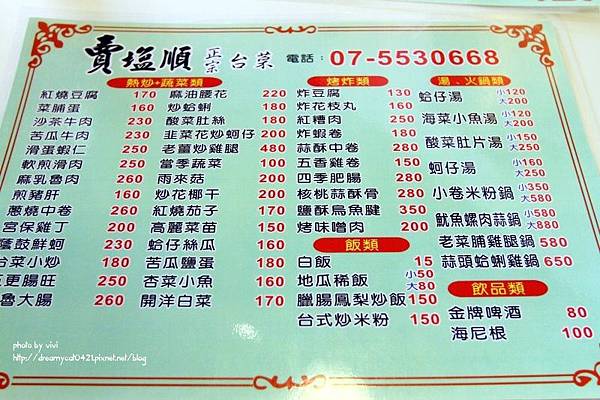 賣塩順 正宗 台菜 電話：07-5530668
熱炒+蔬菜類
紅燒豆腐 170
菜脯蛋 160
沙茶牛肉 230
苦瓜牛肉 230
滑蛋蝦仁 250
軟煎滑肉 250
麻乳魯肉 260
煎豬肝 160
蔥燒中卷 260
宮保雞丁 200
蔭鼓鮮蚵 230
台菜小炒 180
五更腸旺 250
魯大腸 260
麻油腰花 220
炒蛤蜊 180
酸菜肚絲 180
韭菜花炒蚵仔 200
老薑炒雞腿 480
當季蔬菜 100
雨來菇 200
炒花椰干 200
紅燒茄子 170
高麗菜苗 150
蛤仔絲瓜 160
苦瓜鹽蛋 180
杏菜小魚 160
開洋白菜 170
烤炸類
炸豆腐 130
炸花枝丸 160
紅糟肉 250
炸蝦卷 180
蒜酥中卷 280
五香雞卷 150
四季肥腸 280
核桃蒜酥骨 280
鹽酥烏魚腱 350
烤味噌肉 200
飯類
白飯 15
地瓜稀飯 小50 大80
臘腸鳳梨炒飯 150
台式炒米粉 150
湯、火鍋類
蛤仔湯 小120 大200
海菜小魚湯 小120 大200
酸菜肚片湯 小150 大250
蚵仔湯 小160 大250
小卷米粉鍋 小350 大580
魷魚螺肉蒜鍋 小580 大880
老菜脯雞腿鍋 580
蒜頭蛤蜊雞鍋 650
飲品類
金牌啤酒 80
海尼根 100
photo by vivi
http://dreamycat0421.pixnet.net/blog